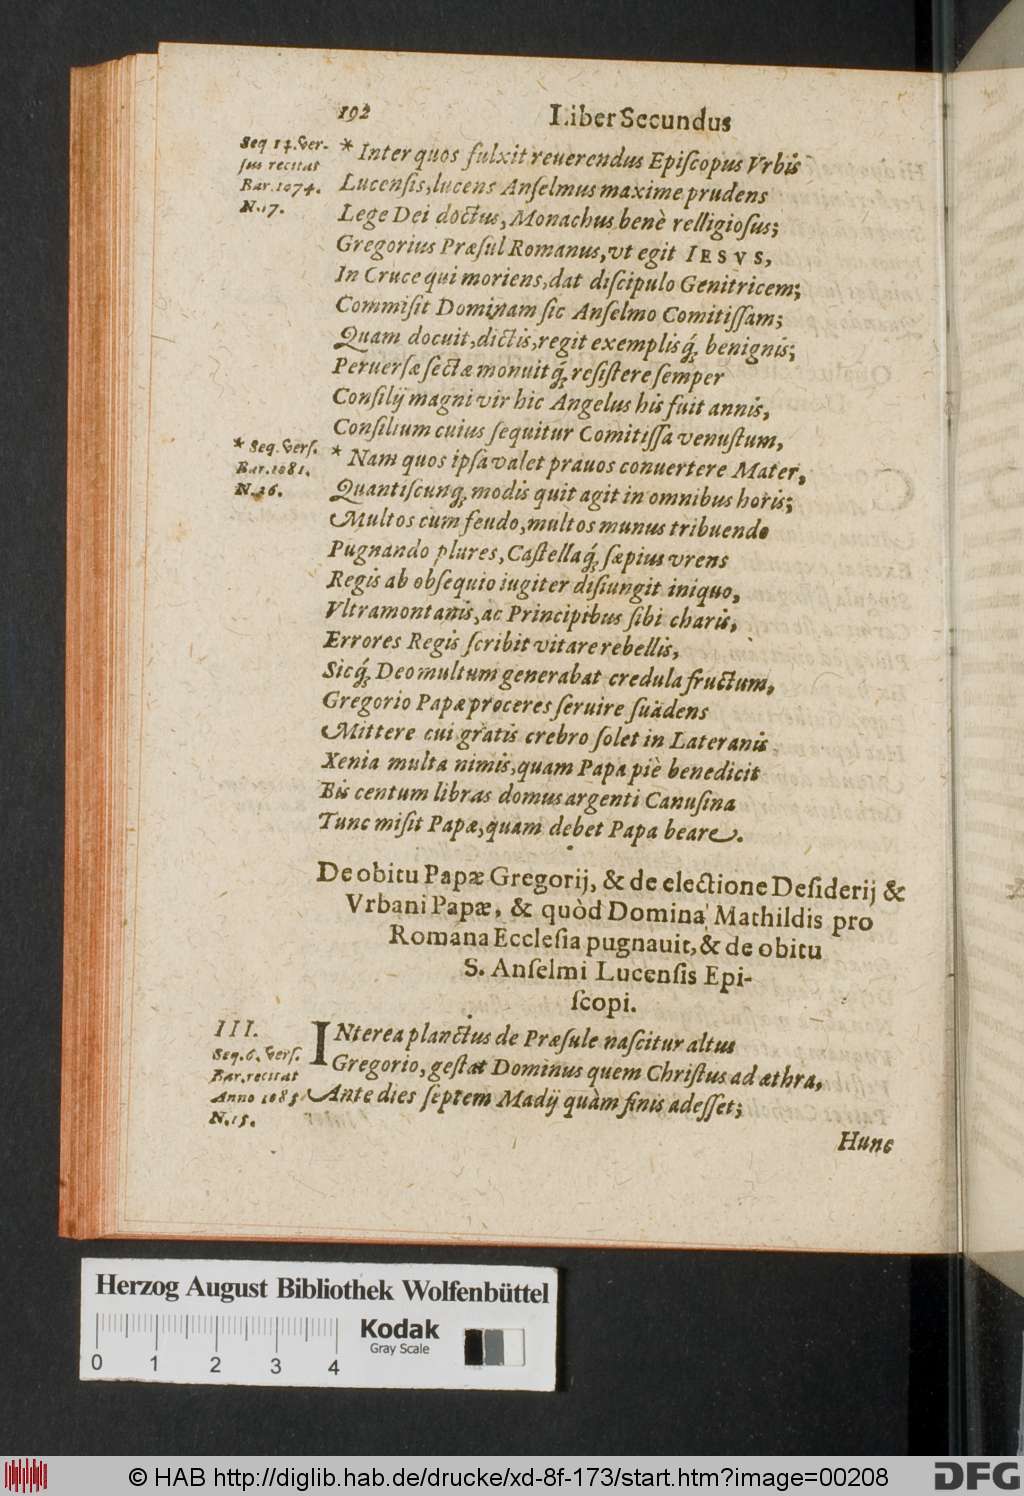 192
Liber Secundus
Seq 17. Ver-
sus recitat
Bar. 1074.
N. 17.
* Inter quos fulxit reuerendus Episcopus Vrbis
Lucensis, lucens Anselmus maxime prudens
Lege Dei doctus, Monachus benè relligiosus;
Gregorius Præsul Romanus, vt egit IESVS,
In Cruce qui moriens, dat discipulo Genitricem;
Commisit Dominam sic Anselmo Comitissam;
Quam docuit, dictis, regit exemplisq́; benignis;
Peruersæ sectæ monuitq́; resistere semper
Consilij magni vir hic Angelus his fuit annis,
Consilium cuius sequitur Comitissa venustum,
* Seq. Vers.
Bar. 1081.
N. 26.
* Nam quos ipsa valet prauos conuertere Mater,
Quantiscunq; modis quit agit in omnibus horis;
Multos cum feudo, multos munus tribuendo
Pugnando plures, Castellaq́; sæpius vrens
Regis ab obsequio iugiter disiungit iniquo,
Vltramontanis, ac Principibus sibi charis,
Errores Regis scribit vitare rebellis,
Sicq́; Deo multum generabat credula fructum,
Gregorio Papæ proceres seruire suadens
Mittere cui gratis crebro solet in Lateranis
Xenia multa nimis, quam Papa piè benedicit
Bis centum libras domus argenti Canusina
Tunc misit Papæ, quam debet Papa beare.
De obitu Papæ Gregorij, & de electione Desiderij &
Vrbani Papæ, & quòd Domina Mathildis pro
Romana Ecclesia pugnauit, & de obitu
S. Anselmi Lucensis Epi-
scopi.
III.
Seq. 6. Vers.
Bar. recitat
Anno 1085
N. 15.
INterea planctus de Præsule nascitur altus
Gregorio, gestat Dominus quem Christus ad æthra,
Ante dies septem Madij quàm finis adesset;
Hunc
Herzog August Bibliothek Wolfenbüttel
0 1 2 3 4
Kodak
Gray Scale
© HAB http://diglib.hab.de/drucke/xd-8f-173/start.htm?image=00208
DFG